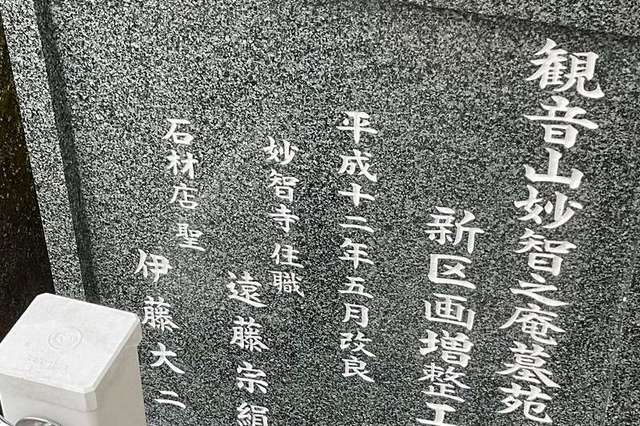 観音山妙智之庵墓苑
新区画増整工
平成十二年五月改良
妙智寺住職
遠藤宗絹
石材店聖
伊藤大二